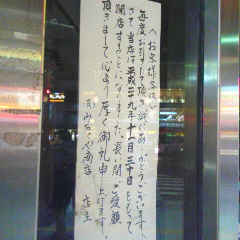 〈お客様各位〉
毎度お引立て頂き誠にありがとうございます。
さて当店は平成二十九年十一月三十日をもって
閉店することになりました。長い間ご愛顧
頂きまして心より厚く御礼申し上げます。
店主